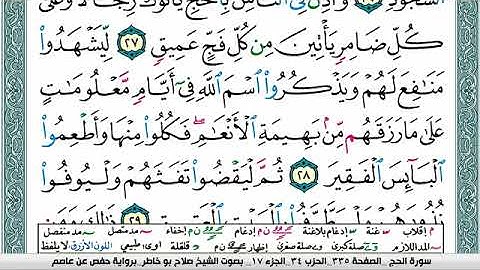 السُّجُودِ ۝٢٦ وَأَذِّن فِي النَّاسِ بِالْحَجِّ يَأْتُوكَ رِجَالًا وَعَلَىٰ
كُلِّ ضَامِرٍ يَأْتِينَ مِن كُلِّ فَجٍّ عَمِيقٍ ۝٢٧ لِّيَشْهَدُوا
مَنَافِعَ لَهُمْ وَيَذْكُرُوا اسْمَ اللَّهِ فِي أَيَّامٍ مَّعْلُومَاتٍ
عَلَىٰ مَا رَزَقَهُم مِّن بَهِيمَةِ الْأَنْعَامِ ۖ فَكُلُوا مِنْهَا وَأَطْعِمُوا
الْبَائِسَ الْفَقِيرَ ۝٢٨ ثُمَّ لْيَقْضُوا تَفَثَهُمْ وَلْيُوفُوا
نُذُورَهُمْ وَلْيَطَّوَّفُوا بِالْبَيْتِ الْعَتِيقِ ۝٢٩ ذَٰلِكَ وَمَن
م إقلاب غنة إدغام بلاغنة ن م إدغام إخفاء مد متصل مد منفصل
المد اللازم صلة كبرى صلة صغرى إظهار ن م قلقلة طبيعي اللون الأزرق لا يلفظ
سورة الحج _ الصفحة ٣٣٥_ الحزب ٣٤ _ الجزء ١٧ _ بصوت الشيخ صلاح بو خاطر _ برواية حفص عن عاصم